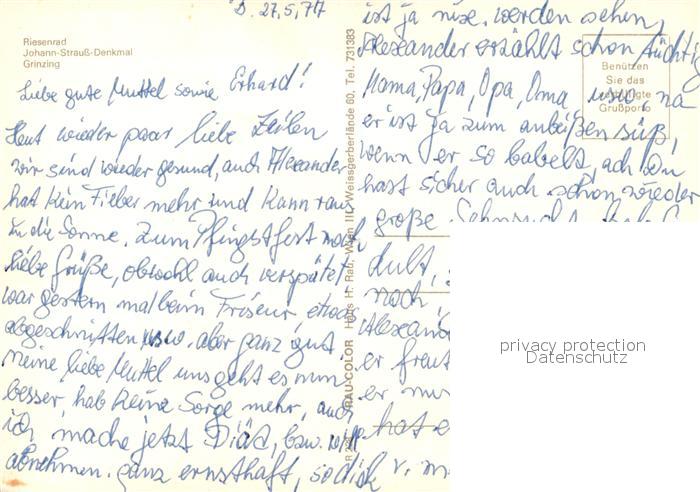 D. 27.5.77
Riesenrad
Johann-Strauß-Denkmal
Grinzing
Liebe gute Muttel sowie Erhard!
Heut wieder paar liebe Zeilen
wir sind wieder gesund, auch Alexander
hat kein Fieber mehr und kann raus
in die Sonne. Zum Pfingstfest noch
liebe Grüße, obwohl auch verspätet
war gestern mal beim Friseur etwas
abgeschnitten usw. aber ganz gut.
Meine liebe Muttel uns geht es nun
besser, hab keine Sorge mehr, auch
ich mache jetzt Diät, bzw. will
abnehmen. ganz ernsthaft, so dick
RAU-COLOR Hans H. Rau, Wien III., Weissgerberlände 60, Tel. 731383
ist ja nix. werden sehen,
Alexander erzählt schon tüchtig
Mama, Papa, Opa, Oma usw. na
er ist ja zum anbeißen süß,
wenn er so babelt, ach Du
hast sicher auch schon wieder
große Sehnsucht
dult,
noch
Alexand
er freut
er nu
hat e
v. m
Benützen
Sie das
Grußporto
privacy protection
Datenschutz